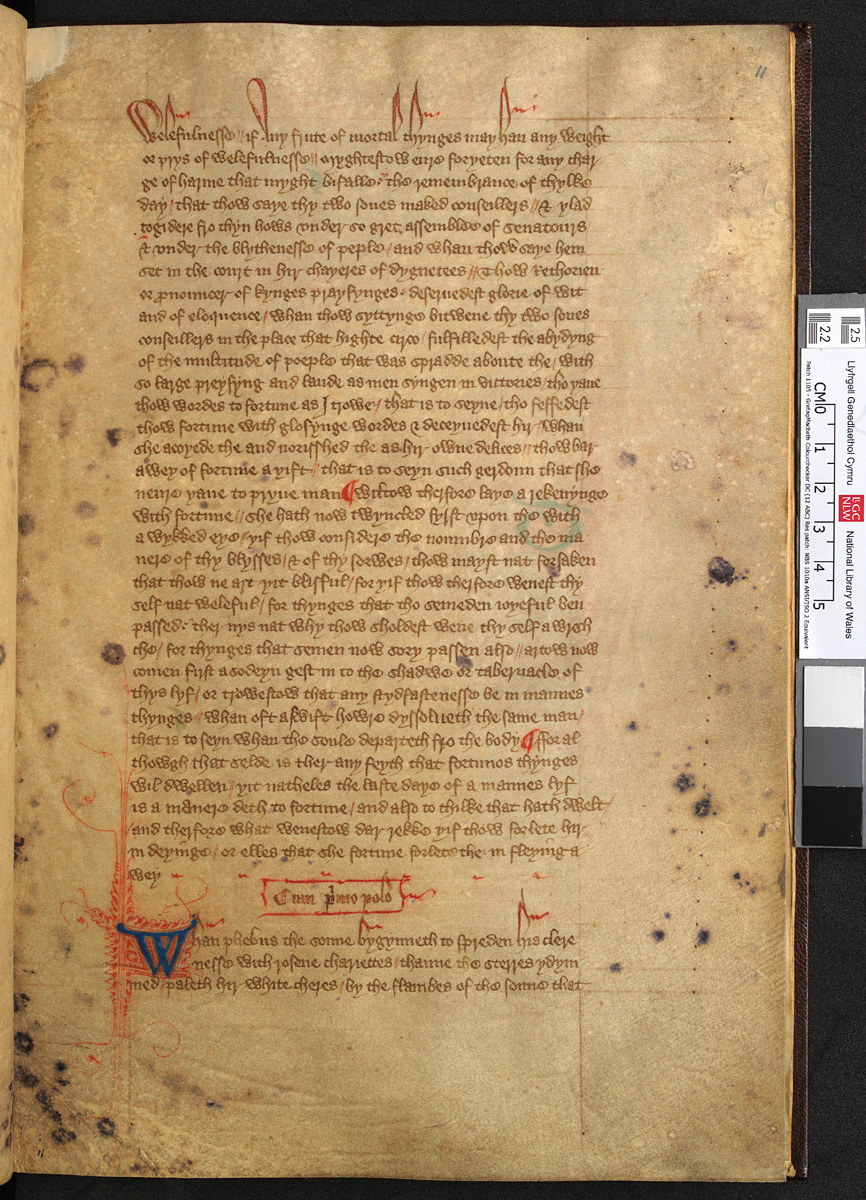 11
Welefulnesse // if Any frute of mortal thynges may han any weight
or prys of welefulnesse // myghtestow euere foryeten for any char
ge of harme that myght bifalle / the remembrance of thylke
day / that thow saye thy two sones maked conseillers // & ylad
togidere fro thyn hows vnder so gret assemblee of senatours
& vnder the blythenesse of peple / and whan thow saye hem
set in the court in hir chayeres of dygnetees // Thow Rethorien
or pronouncer of kynges praysynges / deseruedest glorie of wit
and of eloquence / whan thow syttynge bitwene thy two sones
conseillers in the place that highte circo / fulfilledest the abydyng
of the multitude of poeple that was spradde aboute the / with
so large preysyng and laude as men syngen in victories / tho yaue
thow wordes to fortune as I trowe / that is to seyne / tho feffedest
thow fortune with glosynge wordes & deceyuedest hir / whan
she acoyede the and norisshed the as hir owne delices // thow bar
awey of fortune a yift / that is to seyn such gerdoun that she
neuere yaue to pryue man ¶ wiltow therfore leye a rekenynge
with fortune // she hath now twyncled fyrst vpon the with
a wykked eye / yif thow considere the noumbre and the ma
nere of thy blysses / & of thy sorwes / thow mayst nat forsaken
that thow ne art yit blisful / for yif thow therfore wenest thy
self nat weleful / for thynges that tho semeden ioyeful ben
passed / ther nys nat why thow sholdest wene thy self a wrech
che / for thynges that semen now sory passen also // artow now
comen first a sodeyn gest in to the shadwe or tabernacle of
thys lyf / or trowestow that any stydfastenesse be in mannes
thynges / whan oft a swift howre dyssolueth the same man /
that is to seyn whan the soule departeth fro the body ¶ ffor al
thowgh that selde is ther any feyth that fortunos thynges
wil dwellen / yit natheles the laste daye of a mannes lyf
is a manere deth to fortune / and also to thilke that hath dwelt
and therfore what wenestow dar rekke yif thow forlete hir
in deyinge / or elles that she fortune forlete the in fleyinge a
wey
Cum primo polo
Whan phebus the sonne bygynneth to spreden his clere
nesse with rosene chariettes / thanne the sterres ydym
med / paleth hir white cheres / by the flambes of the sonne that
11
2.2
2.5
Llyfrgell Genedlaethol Cymru
National Library of Wales
LLGC
NLW
CM 0 1 2 3 4 5